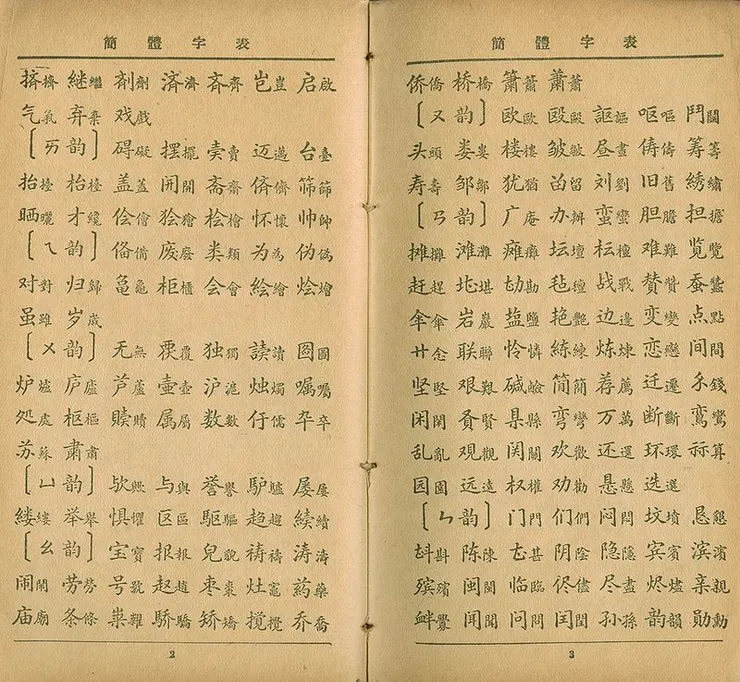 簡體字表
挤擠 継繼 剤劑 済濟 斉齊 岂豈 启啟
气氣 弃棄 戏戲
〔ㄞ韵〕 碍礙 摆擺 卖賣 迈邁 台臺
抬擡 枱檯 盖蓋 開開 斋齋 侪儕 筛篩
晒曬 才纔 侩儈 狯獪 桧檜 怀懷 帅帥
〔ㄟ韵〕 俻備 废廢 类類 为為 伪偽
对對 归歸 亀龜 柜櫃 会會 絵繪 烩燴
虽雖 岁歲
〔ㄨ韵〕 无無 覆 独獨 読讀 圖
炉爐 庐廬 芦蘆 壶壺 沪滬 烛燭 嘱囑
処處 枢樞 赎贖 属屬 数數 儒 卒
苏蘇 肃肅
〔ㄩ韵〕 欤歟 与與 誉譽 驴驢 屡屢
缕縷 举舉 惧懼 区區 駆驅 趋趨 続續
〔ㄠ韵〕 宝寶 报報 皃貌 祷禱 涛濤
闹鬧 劳勞 号號 赵趙 枣棗 灶竈 药藥
庙廟 条條 粜糶 骄驕 矫矯 搅攪 乔喬
2
簡體字表
侨僑 桥橋 簫 萧蕭
〔ㄡ韵〕 欧歐 殴毆 謳 呕嘔 鬥鬭
头頭 娄婁 楼樓 皱皺 昼晝 俦儔 筹籌
寿壽 邹鄒 犹猶 留 刘劉 旧舊 绣繡
〔ㄢ韵〕 广庵 办辦 蛮蠻 胆膽 担擔
摊攤 滩灘 瘫癱 坛壇 枟檀 难難 览覽
赶趕 堪 勘 毡氈 战戰 賛贊 蚕蠶
伞傘 岩巖 塩鹽 艳艷 边邊 变變 点點
廿念 联聯 怜憐 練練 炼煉 恋戀 间間
坚堅 艰艱 碱鹼 简簡 荐薦 迁遷 錢
闲閑 贤賢 县縣 弯彎 万萬 断斷 鸾鸞
乱亂 观觀 関關 欢歡 还還 环環 祘算
园園 远遠 权權 劝勸 悬懸 选選
〔ㄣ韵〕 门門 们們 闷悶 坟墳 恳懇
斟 陈陳 甚 阴陰 隐隱 宾賓 滨濱
殡殯 闽閩 临臨 侭儘 尽盡 烬燼 亲親
衅釁 闻聞 问問 闰閏 孙孫 韵韻 勋勳
3